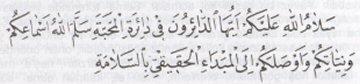 سَلَامُ اللّٰهِ عَلَيْكُمْ أَيُّهَا الدَّائِرُونَ فِي دَائِرَةِ الْمَحَبَّةِ سَلَّمَ اللّٰهُ أَسْمَاعَكُمْ
وَنِيَّاتِكُمْ وَأَوْصَلَكُمْ إِلَى الْمُبْتَدَاءِ الْحَقِيقِيِّ بِالسَّلَامَةِ